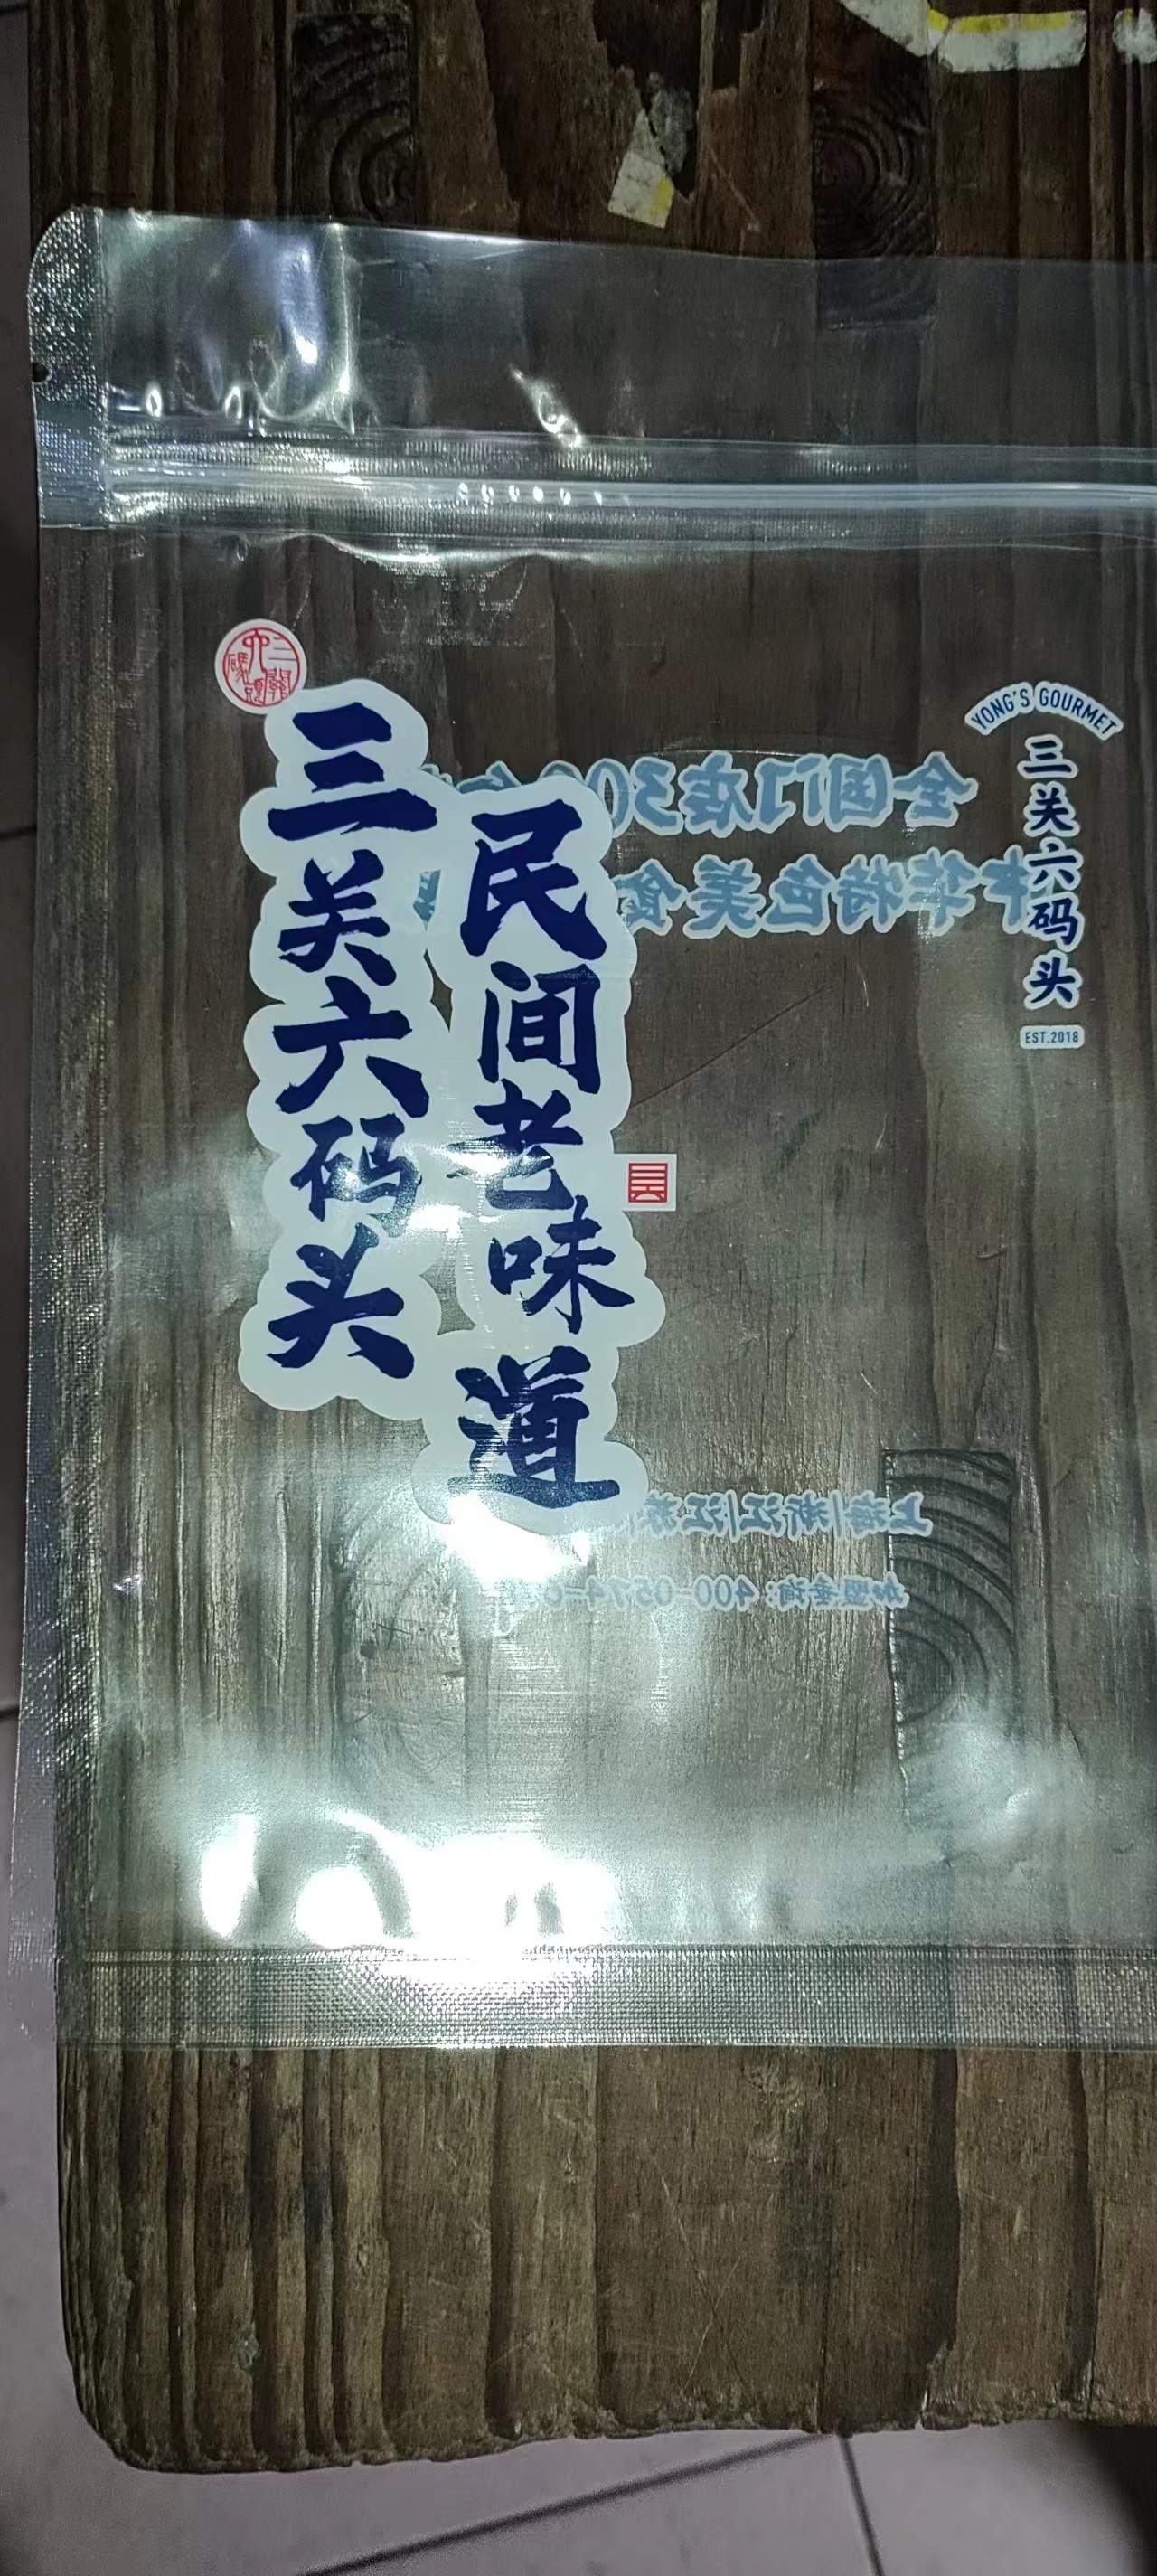 三关六码头
民间老味道
YONG'S GOURMET
三关六码头
EST.2018
三關六碼頭
全国门店300
中华特色美食
上海/浙江/江苏
加盟垂询：400-0574-